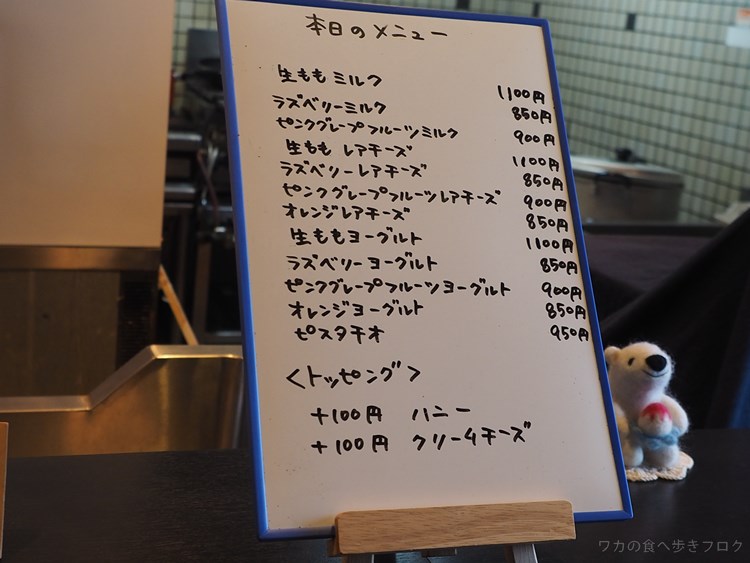 本日のメニュー
生ももミルク 1100円
ラズベリーミルク 850円
ピンクグレープフルーツミルク 900円
生もも レアチーズ 1100円
ラズベリーレアチーズ 850円
ピンクグレープフルーツレアチーズ 900円
オレンジレアチーズ 850円
生ももヨーグルト 1100円
ラズベリーヨーグルト 850円
ピンクグレープフルーツヨーグルト 900円
オレンジヨーグルト 850円
ピスタチオ 950円
<トッピング>
+100円 ハニー
+100円 クリームチーズ
ワカの食べ歩きブログ